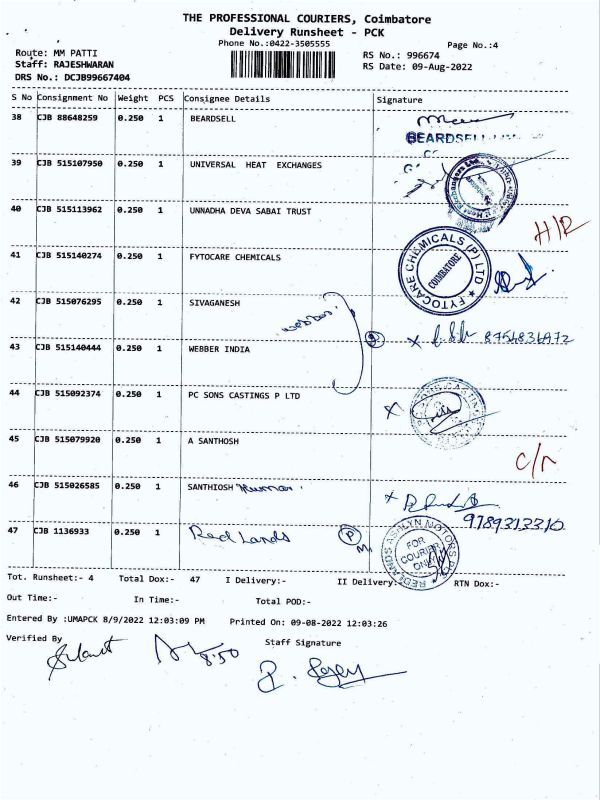 THE PROFESSIONAL COURIERS, Coimbatore
Delivery Runsheet - PCK
Phone No.:0422-3505555
Page No.:4
Route: MM PATTI
RS No.: 996674
Staff: RAJESHWARAN
RS Date: 09-Aug-2022
DRS No.: DCJB99667404
S No Consignment No Weight PCS Consignee Details Signature
38 CJB 88648259 0.250 1 BEARDSELL
BEARDSELL
39 CJB 515107950 0.250 1 UNIVERSAL HEAT EXCHANGES
40 CJB 515113962 0.250 1 UNNADHA DEVA SABAI TRUST
41 CJB 515140274 0.250 1 FYTOCARE CHEMICALS
FYTOCARE CHEMICALS (P) LTD
COIMBATORE
42 CJB 515076295 0.250 1 SIVAGANESH
8754836972
43 CJB 515140444 0.250 1 WEBBER INDIA
44 CJB 515092374 0.250 1 PC SONS CASTINGS P LTD
45 CJB 515079920 0.250 1 A SANTHOSH
46 CJB 515026585 0.250 1 SANTHIOSH Kumar.
9789313310
47 CJB 1136933 0.250 1 Redlands
P
REDLANDS ASHLYN MOTORS PCS
FOR
COURIER
ONLY
Tot. Runsheet:- 4 Total Dox:- 47 I Delivery:- II Delivery:- RTN Dox:-
Out Time:- In Time:- Total POD:-
Entered By :UMAPCK 8/9/2022 12:03:09 PM Printed On: 09-08-2022 12:03:26
Verified By Staff Signature
8:50